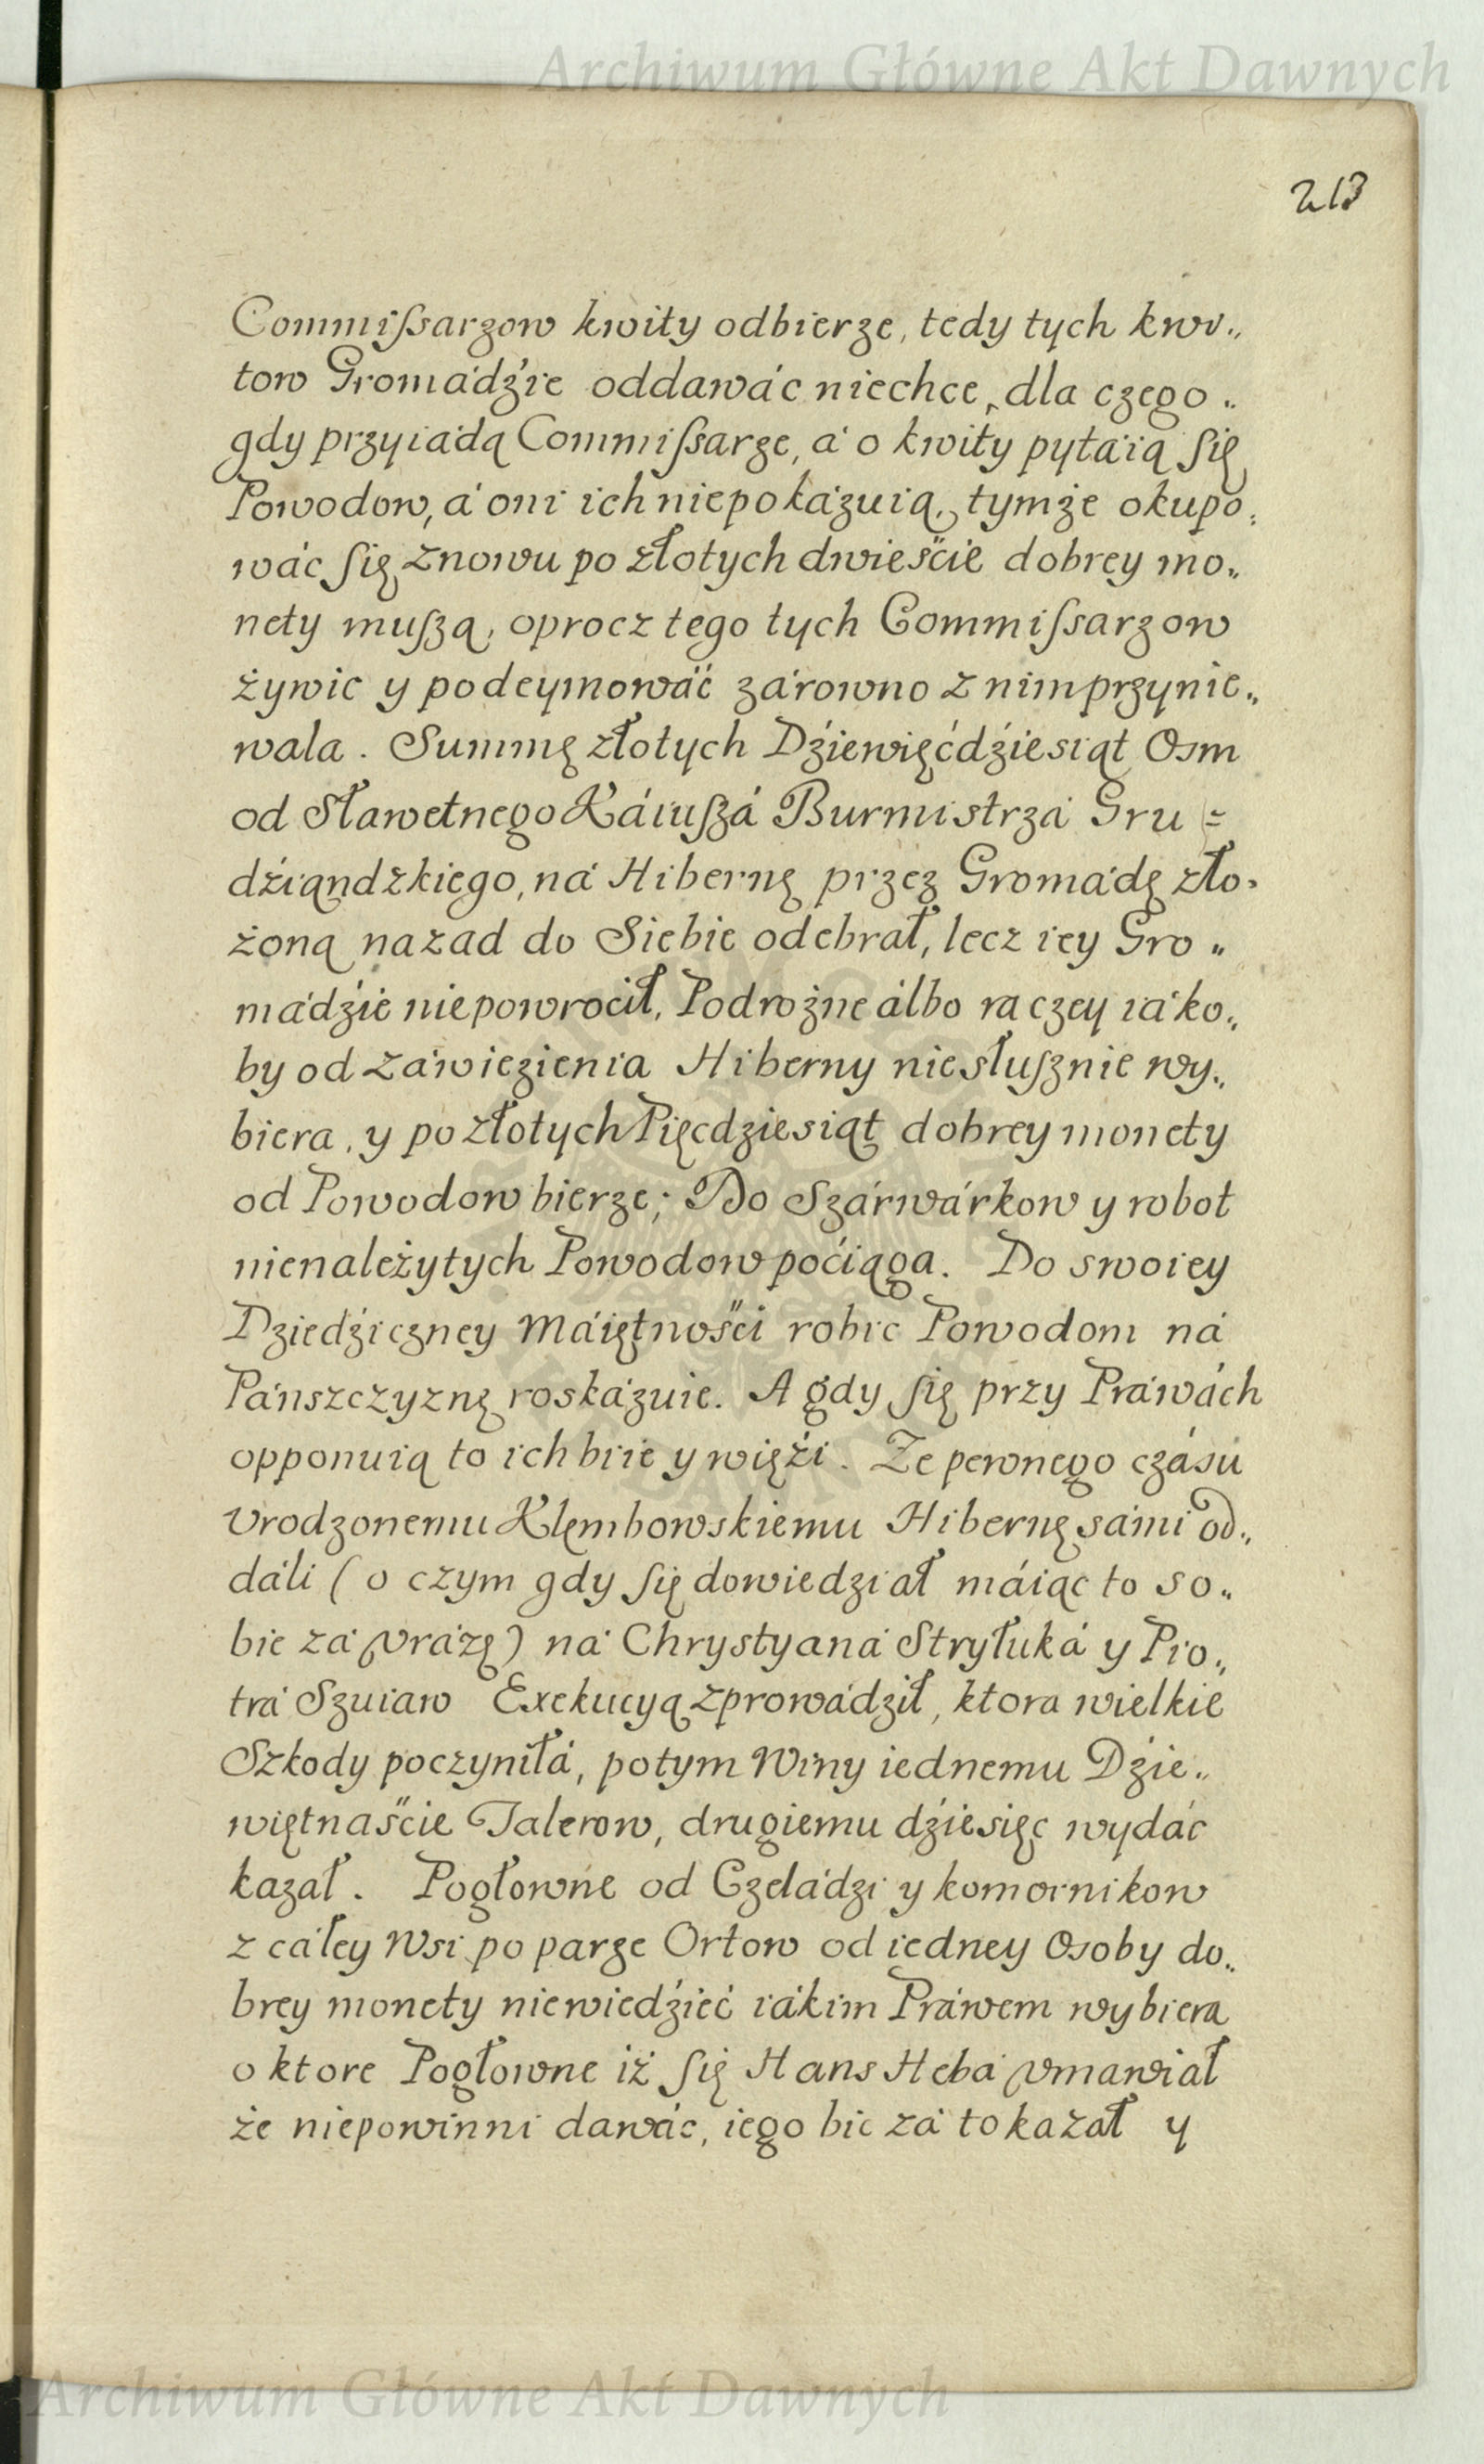 Archiwum Główne Akt Dawnych
213
Commißarzow kwity odbierze, tedy tych kwi„
tow Gromádźie oddawáć niechce, dla czego„
gdy przyiádą Commißarze, á o kwity pytáią się
Powodow, á oni ich niepokázuią, tymże okupo„
wáć się znowu po złotych dwieście dobrey mo„
nety muszą, oprocz tego tych Commißarzow
żywic y podeymowáć zárowno z nim przynie„
wala. Summę złotych Dźiewięćdźiesiąt Osm
od Sławetnego Káiuszá Burmistrzá Gru=
dźiąndzkiego, ná Hibernę przez Gromádę zło„
żoną nazad do Siebie odebrał, lecz iey Gro„
mádźie niepowrocił, Podrożne álbo raczey iáko„
by od záwiezienia Hiberny niesłusznie wy„
biera, y po złotych Pięcdziesiąt dobrey monety
od Powodow bierze; Do Szárwárkow y robot
nienależytych Powodow pociąga. Do swoiey
Dziedźiczney Máiętności robic Powodom ná
Pánszczyznę roskázuie. A gdy się przy Práwách
opponuią to ich biie y więźi. Ze pewnego czásu
Vrodzonemu Klęmbowskiemu Hibernę sámi od„
dáli (o czym gdy się dowiedział máiąc to so„
bie zá vrázę) ná Chrystyaná Stryłuká y Pio„
trá Szuiaw Exekucyą zprowádził, ktora wielkie
Szkody poczyniłá, potym Winy iednemu Dźie„
więtnaście Talerow, drugiemu dźiesięc wydác
kazał. Pogłowne od Czeládzi y komornikow
z cáłey Wsi po parze Ortow od iedney Osoby do„
brey monety niewiedźieć iákim Práwem wybiera
o ktore Pogłowne iż się Hans Hebá vmawiał
że niepowinni dawác, iego bic zá to kazał y
Archiwum Główne Akt Dawnych